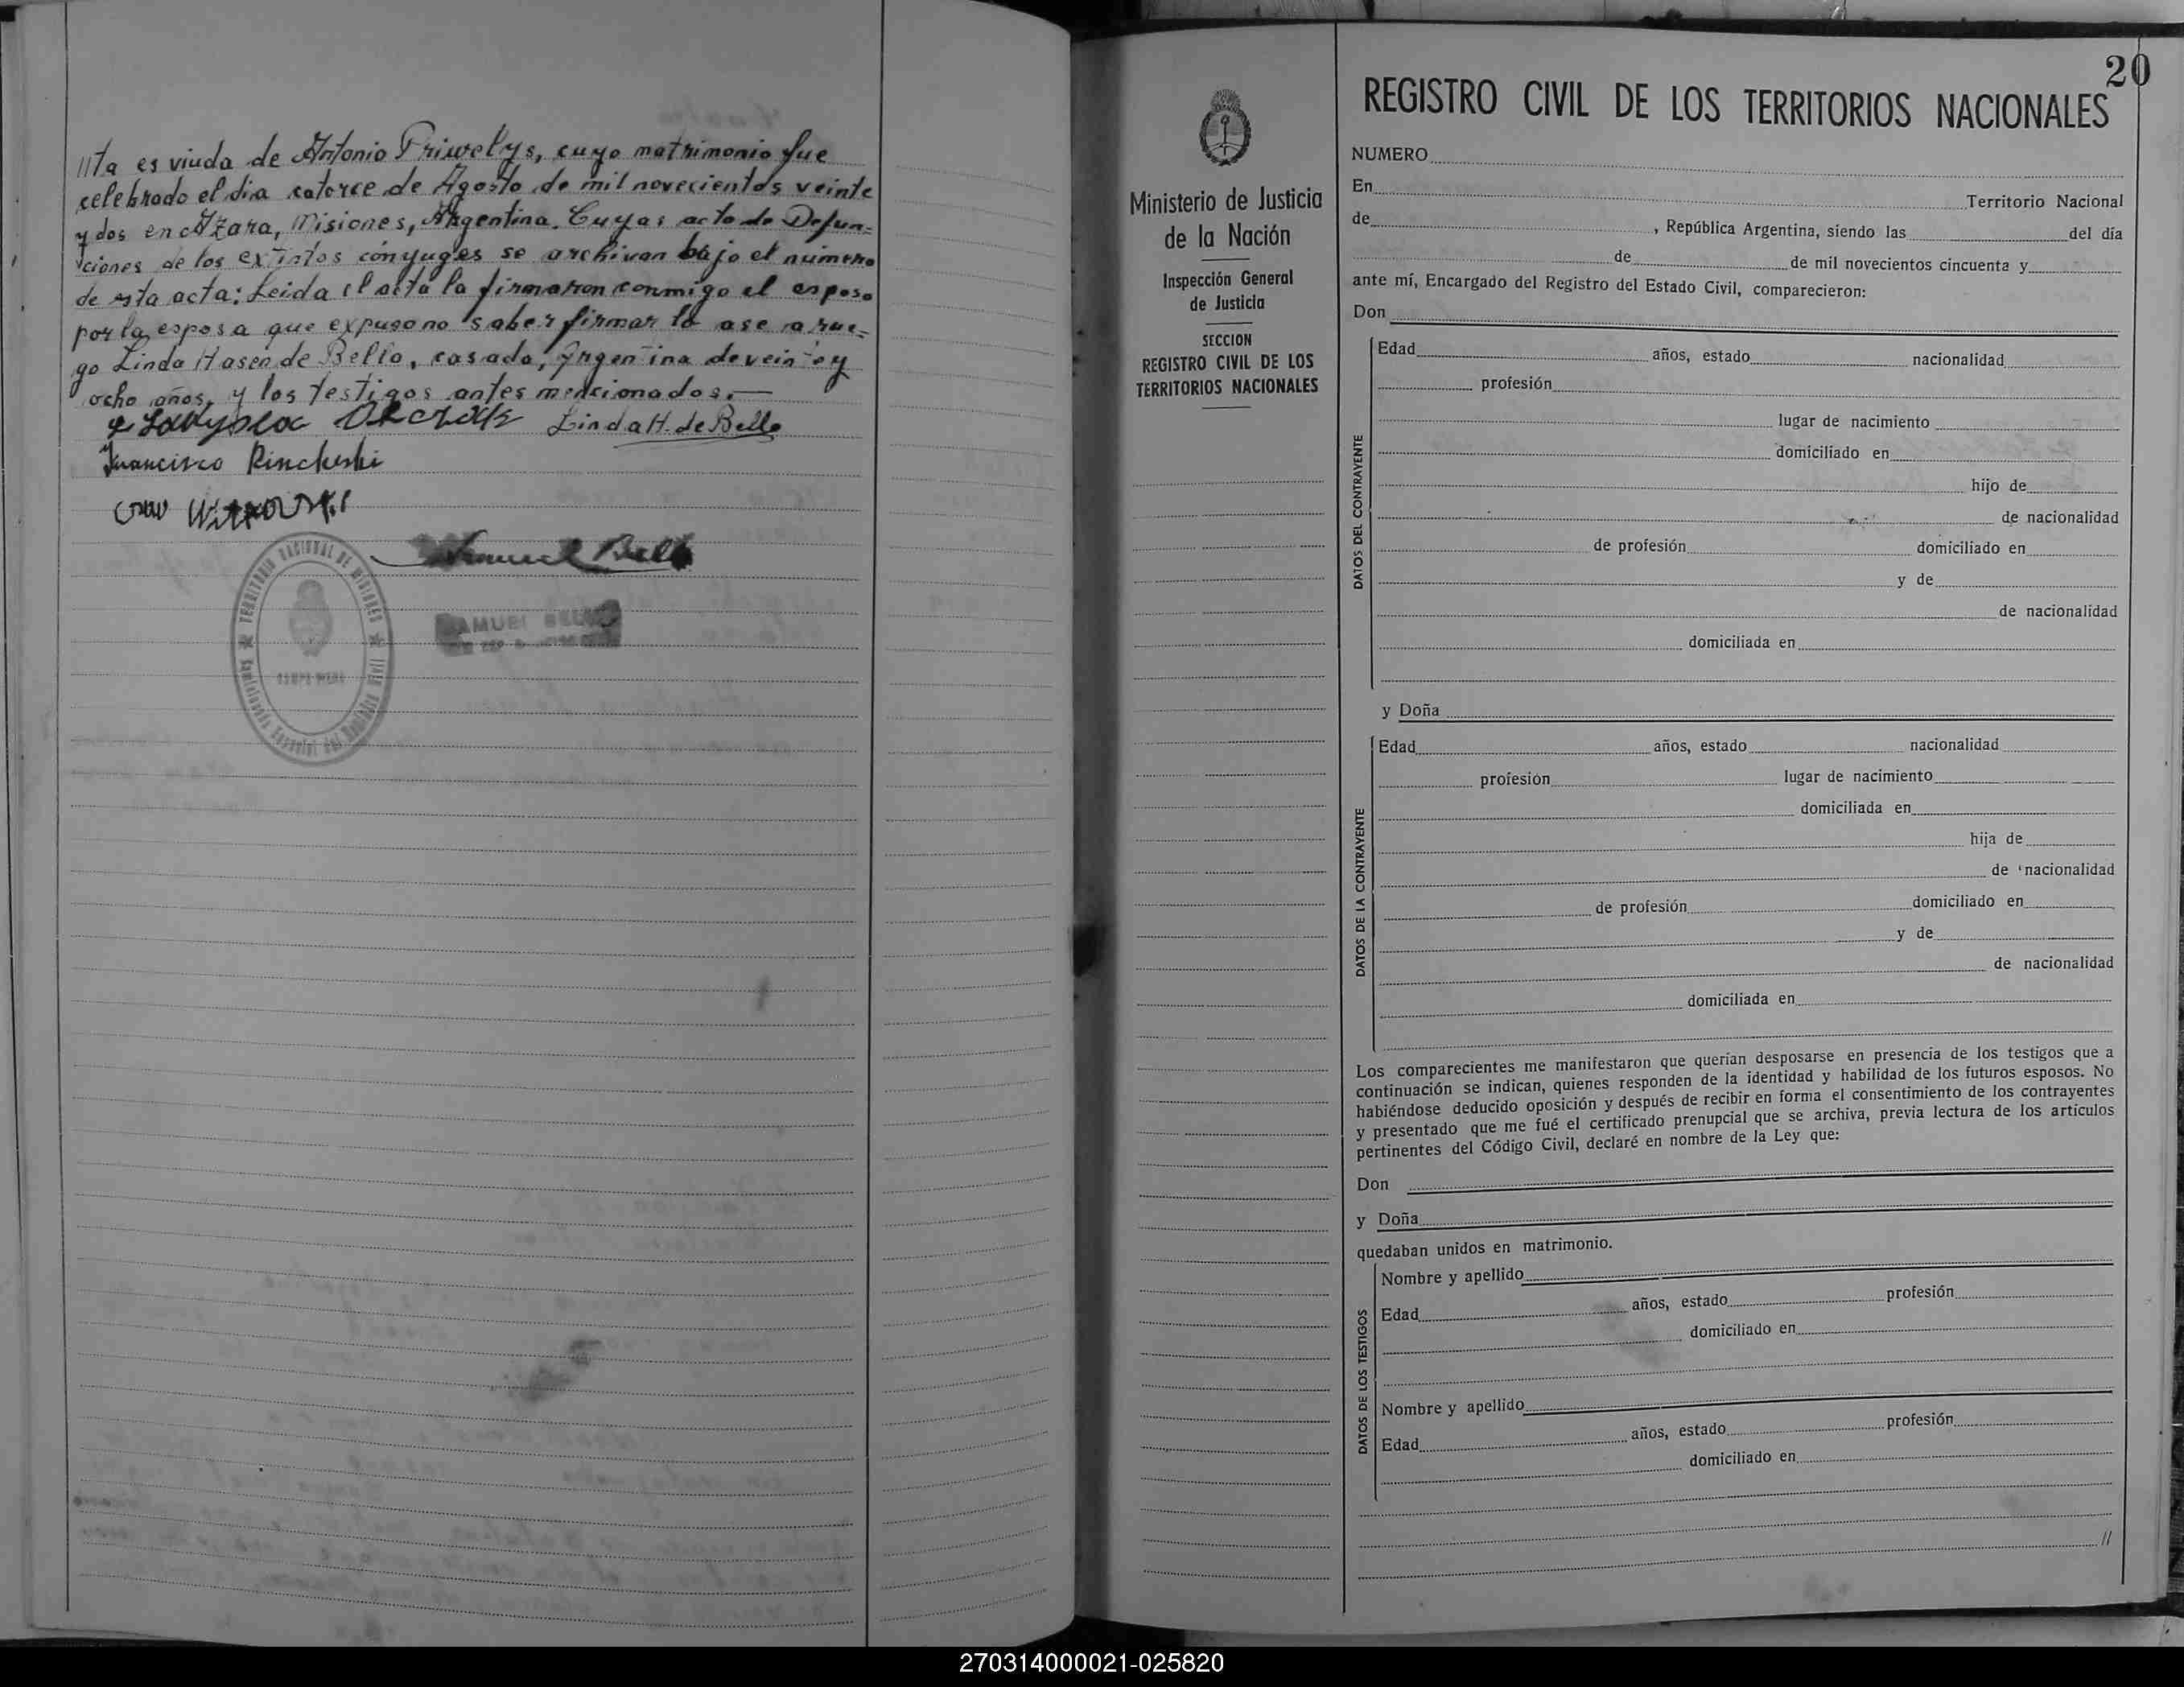 //ta es viuda de Antonio Priwelys, cuyo matrimonio fue
celebrado el dia catorce de Agosto de mil novecientos veinte
y dos en Azara, Misiones, Argentina. Cuyas acta de Defun=
ciones de los extintos cónyuges se archivan bajo el número
de esta acta: Leida el acta la firmaron conmigo el esposo
por la esposa que expuso no saber firmar lo ase a rue=
go Linda Hasen de Bello, casada, Argentina de veinte y
ocho años, y los testigos antes mencionados.—
Linda H. de Bello
Francisco Rincheski
Witkowski
Samuel Bello
TERRITORIO NACIONAL DE MISIONES
SAMUEL BELLO
20
REGISTRO CIVIL DE LOS TERRITORIOS NACIONALES
Ministerio de Justicia
de la Nación
Inspección General
de Justicia
SECCION
REGISTRO CIVIL DE LOS
TERRITORIOS NACIONALES
NUMERO
En Territorio Nacional
de , República Argentina, siendo las del día
de de mil novecientos cincuenta y
ante mí, Encargado del Registro del Estado Civil, comparecieron:
Don
DATOS DEL CONTRAYENTE
Edad años, estado nacionalidad
profesión
lugar de nacimiento
domiciliado en
hijo de
de nacionalidad
de profesión domiciliado en
y de
de nacionalidad
domiciliada en
y Doña
DATOS DE LA CONTRAYENTE
Edad años, estado nacionalidad
profesión lugar de nacimiento
domiciliada en
hija de
de nacionalidad
de profesión domiciliado en
y de
de nacionalidad
domiciliada en
Los comparecientes me manifestaron que querían desposarse en presencia de los testigos que a
continuación se indican, quienes responden de la identidad y habilidad de los futuros esposos. No
habiéndose deducido oposición y después de recibir en forma el consentimiento de los contrayentes
y presentado que me fué el certificado prenupcial que se archiva, previa lectura de los artículos
pertinentes del Código Civil, declaré en nombre de la Ley que:
Don
y Doña
quedaban unidos en matrimonio.
DATOS DE LOS TESTIGOS
Nombre y apellido
Edad años, estado profesión
domiciliado en
Nombre y apellido
Edad años, estado profesión
domiciliado en
//
270314000021-025820